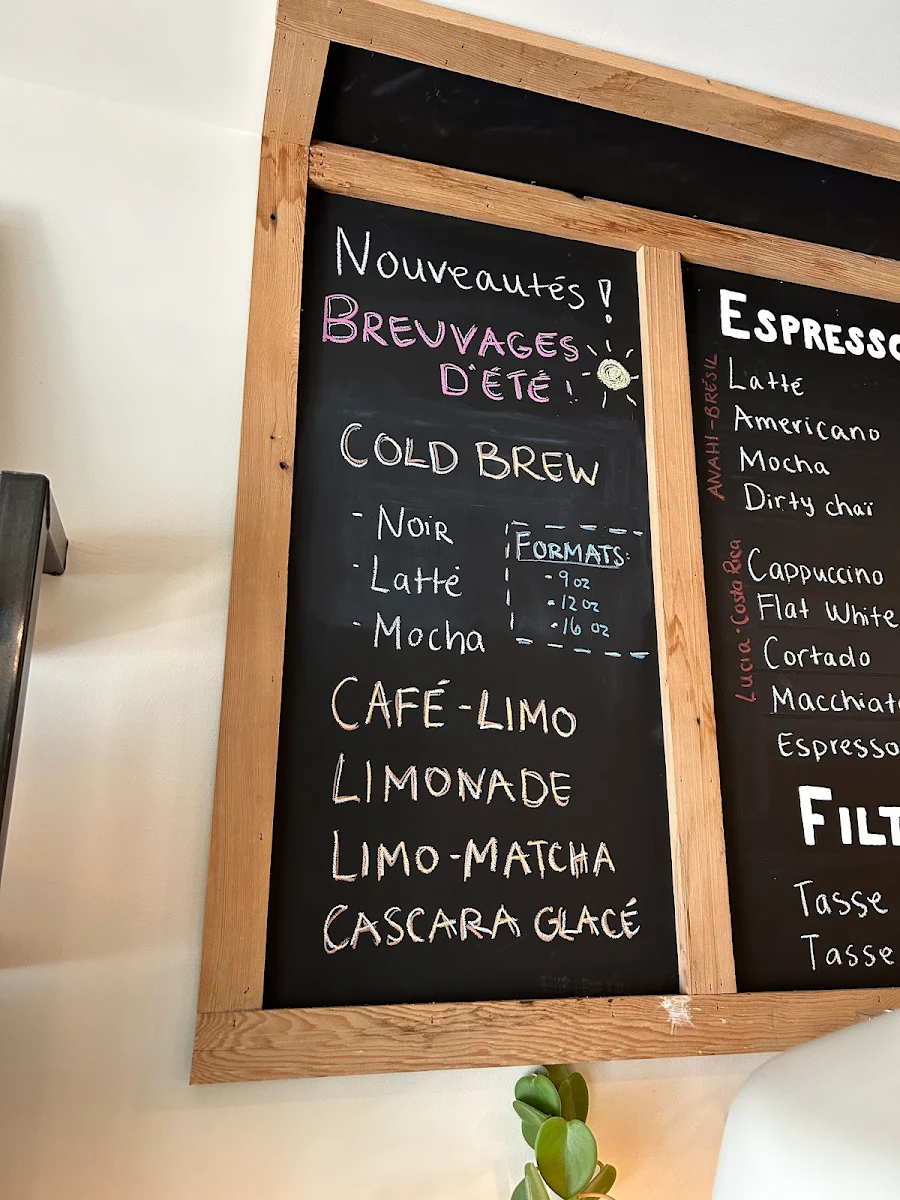 Nouveautés !
BREUVAGES
D'ÉTÉ !
COLD BREW
- Noir
- Latté
- Mocha
FORMATS:
- 9 oz
- 12 oz
- 16 oz
CAFÉ-LIMO
LIMONADE
LIMO-MATCHA
CASCARA GLACÉ
ESPRESSO
ANAHI-BRÉSIL
Latté
Americano
Mocha
Dirty chaï
Lucia·Costa Rica
Cappuccino
Flat White
Cortado
Macchiato
Espresso
FILT
Tasse
Tasse